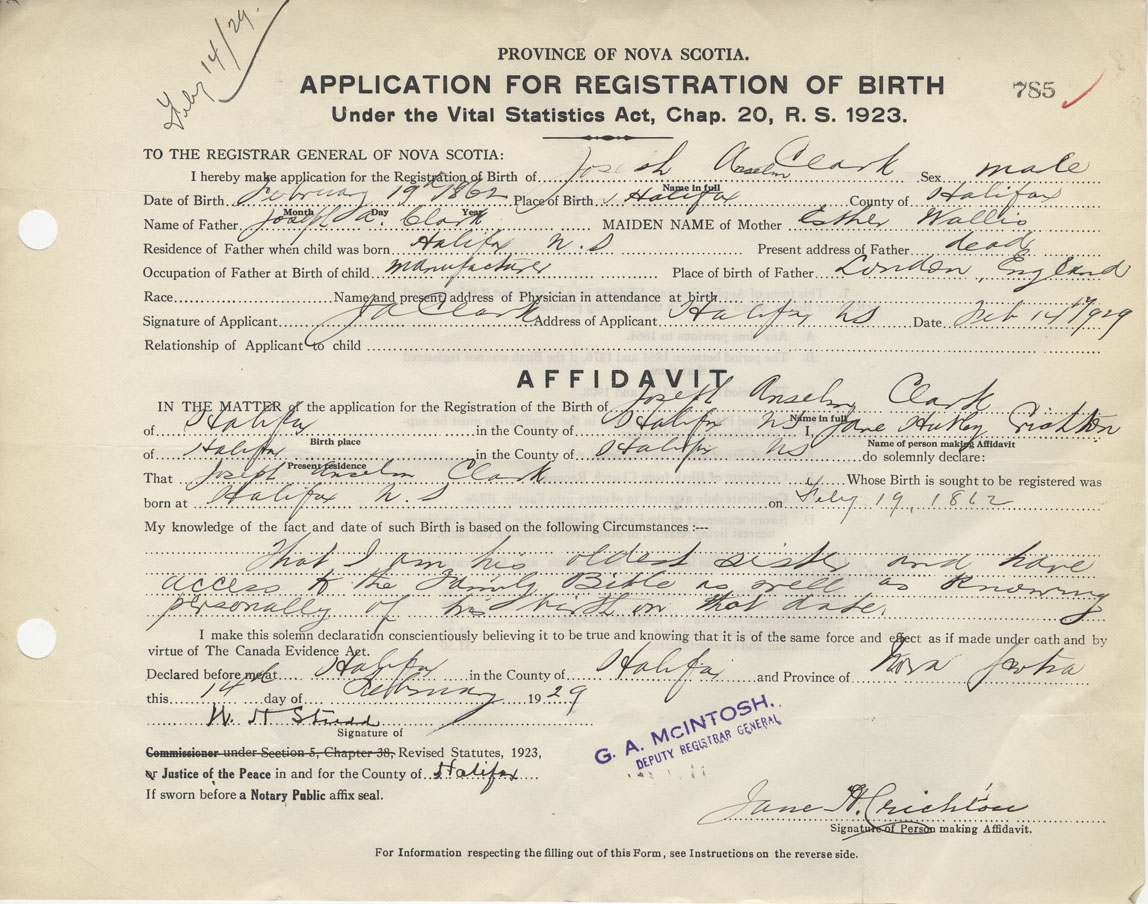 Feby 14/29.
PROVINCE OF NOVA SCOTIA.
APPLICATION FOR REGISTRATION OF BIRTH
785
Under the Vital Statistics Act, Chap. 20, R. S. 1923.
TO THE REGISTRAR GENERAL OF NOVA SCOTIA:
I hereby make application for the Registration of Birth of Joseph Anselm Clark Sex male
Name in full
Date of Birth February 19th 1862 Place of Birth Halifax County of Halifax
Month Day Year
Name of Father Joseph A. Clark MAIDEN NAME of Mother Esther Wallis
Residence of Father when child was born Halifax N.S Present address of Father dead
Occupation of Father at Birth of child manufacturer Place of birth of Father London, England
Race Name and present address of Physician in attendance at birth
Signature of Applicant J A Clark Address of Applicant Halifax NS Date Feb 14th/1929
Relationship of Applicant to child
AFFIDAVIT
IN THE MATTER of the application for the Registration of the Birth of Joseph Anselm Clark
Name in full
of Halifax in the County of Halifax NS I, Jane Crichton
Birth place Name of person making Affidavit
of Halifax in the County of Halifax NS do solemnly declare:
Present residence
That Joseph Anselm Clark Whose Birth is sought to be registered was
born at Halifax N.S on Feby 19, 1862
My knowledge of the fact and date of such Birth is based on the following Circumstances :---
That I am his oldest sister and have
access to the Family Bible as well as Knowing
personally of his birth on that date.
I make this solemn declaration conscientiously believing it to be true and knowing that it is of the same force and effect as if made under oath and by
virtue of The Canada Evidence Act.
Declared before me at Halifax in the County of Halifax and Province of Nova Scotia
this 14th day of February 1929
W. H
Signature of
Commissioner under Section 5, Chapter 38, Revised Statutes, 1923,
or Justice of the Peace in and for the County of Halifax
If sworn before a Notary Public affix seal.
G. A. McINTOSH.
DEPUTY REGISTRAR GENERAL
Jane H. Crichton
Signature of Person making Affidavit.
For Information respecting the filling out of this Form, see Instructions on the reverse side.